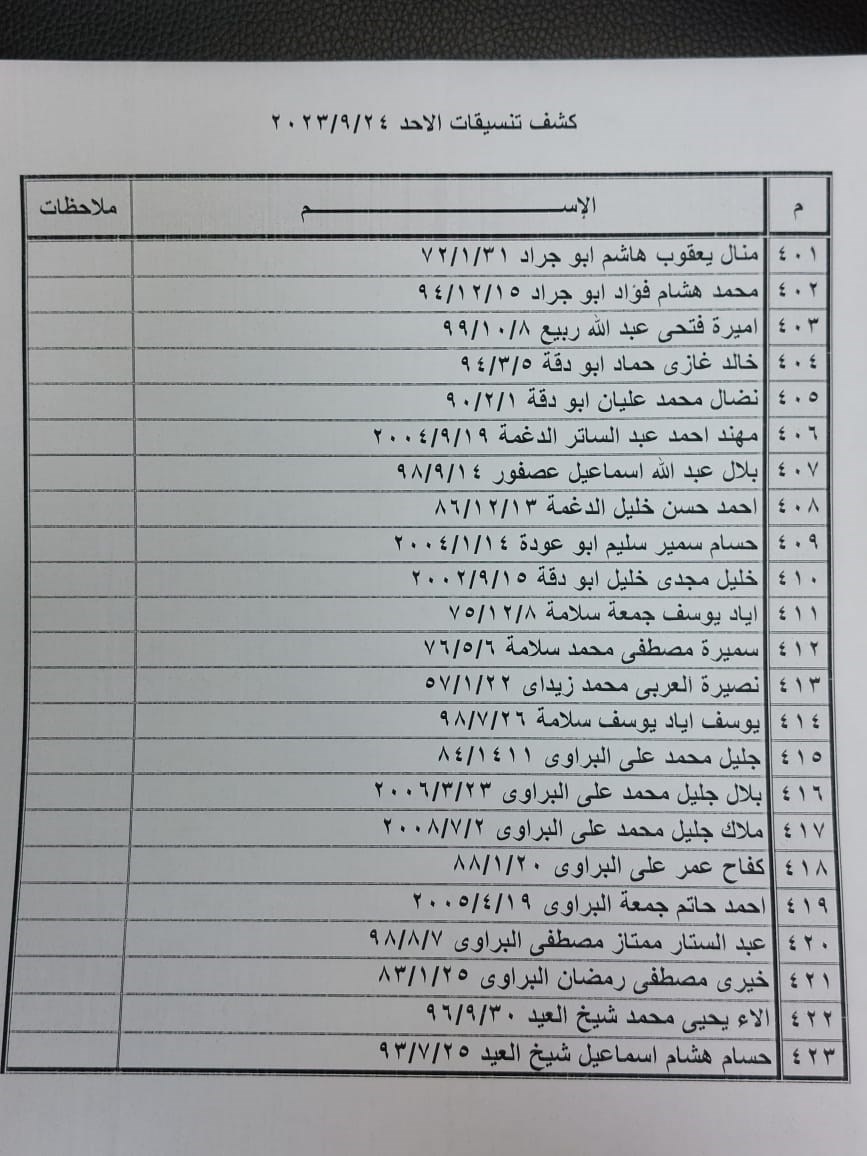 كشف تنسيقات الاحد ٢٠٢٣/٩/٢٤
م الإســـــــــــــــــم ملاحظات
٤٠١ منال يعقوب هاشم ابو جراد ٧٢/١/٣١
٤٠٢ محمد هشام فؤاد ابو جراد ٩٤/١٢/١٥
٤٠٣ اميرة فتحى عبد الله ربيع ٩٩/١٠/٨
٤٠٤ خالد غازى حماد ابو دقة ٩٤/٣/٥
٤٠٥ نضال محمد عليان ابو دقة ٩٠/٢/١
٤٠٦ مهند احمد عبد الساتر الدغمة ٢٠٠٤/٩/١٩
٤٠٧ بلال عبد الله اسماعيل عصفور ٩٨/٩/١٤
٤٠٨ احمد حسن خليل الدغمة ٨٦/١٢/١٣
٤٠٩ حسام سمير سليم ابو عودة ٢٠٠٤/١/١٤
٤١٠ خليل مجدى خليل ابو دقة ٢٠٠٢/٩/١٥
٤١١ اياد يوسف جمعة سلامة ٧٥/١٢/٨
٤١٢ سميرة مصطفى محمد سلامة ٧٦/٥/٦
٤١٣ نصيرة العربى محمد زيداى ٥٧/١/٢٢
٤١٤ يوسف اياد يوسف سلامة ٩٨/٧/٢٦
٤١٥ جليل محمد على البراوى ٨٤/١٤١١
٤١٦ بلال جليل محمد على البراوى ٢٠٠٦/٣/٢٣
٤١٧ ملاك جليل محمد على البراوى ٢٠٠٨/٧/٢
٤١٨ كفاح عمر على البراوى ٨٨/١/٢٠
٤١٩ احمد حاتم جمعة البراوى ٢٠٠٥/٤/١٩
٤٢٠ عبد الستار ممتاز مصطفى البراوى ٩٨/٨/٧
٤٢١ خيرى مصطفى رمضان البراوى ٨٣/١/٢٥
٤٢٢ الاء يحيى محمد شيخ العيد ٩٦/٩/٣٠
٤٢٣ حسام هشام اسماعيل شيخ العيد ٩٣/٧/٢٥